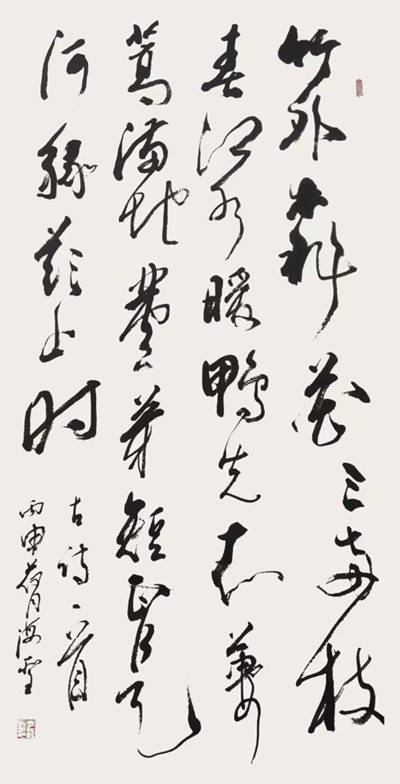 竹外桃花三两枝
春江水暖鴨先知蒌
蒿满地蘆芽短正是
河豚欲上时
古诗一首
丙申荷月海